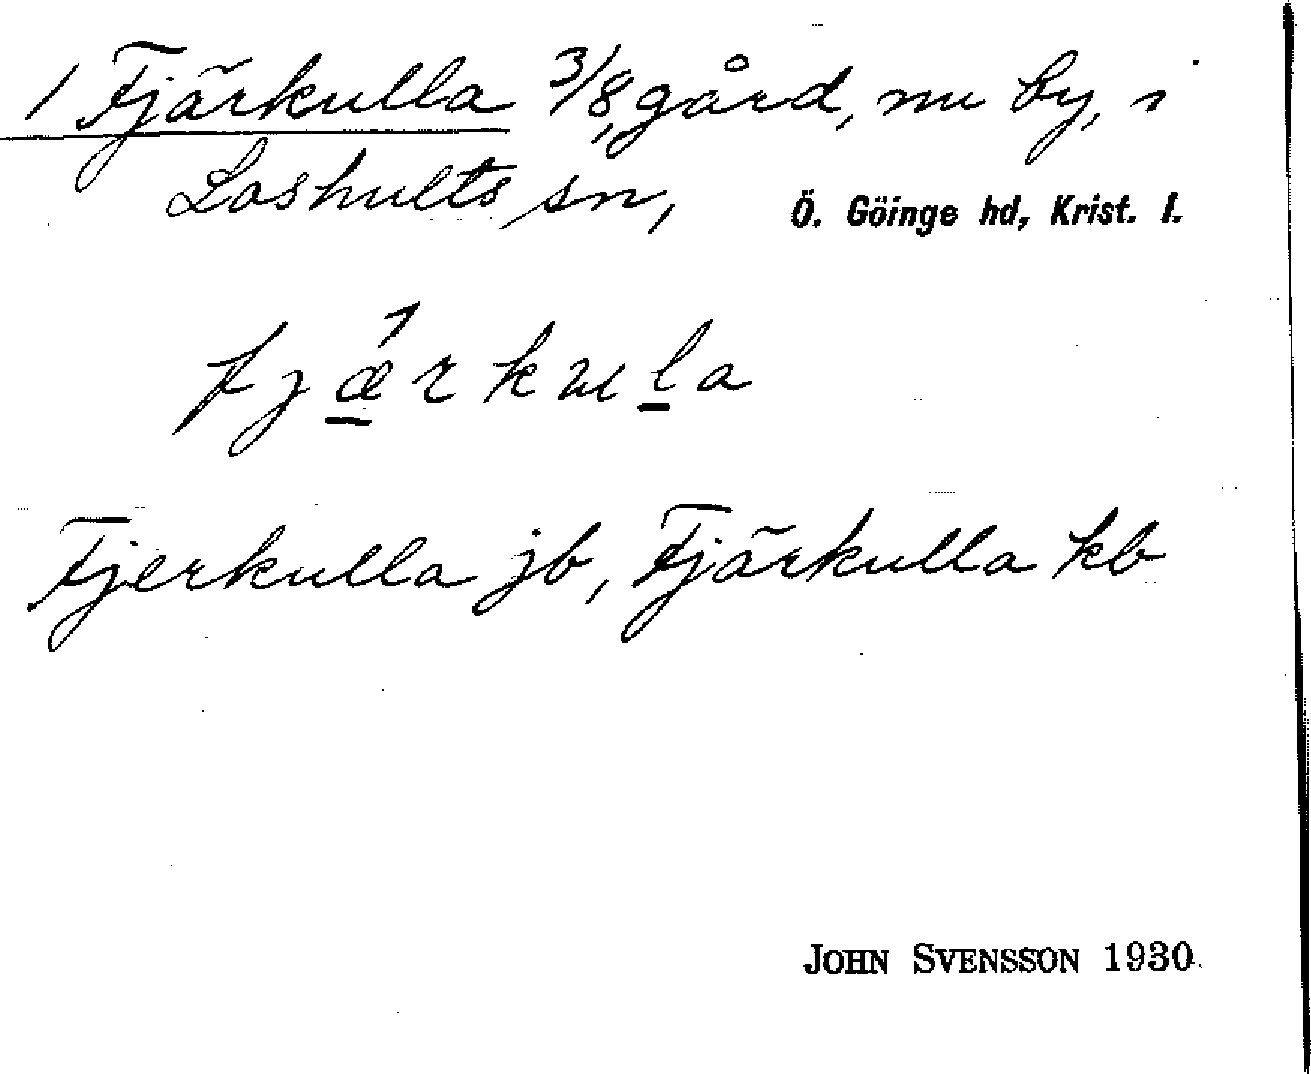 1 Fjärkulla 3/8 gård, nu by, i
Loshults sn, Ö. Göinge hd, Krist. l.
fjǽrkula
Fjerkulla jb, Fjärkulla kb
JOHN SVENSSON 1930.